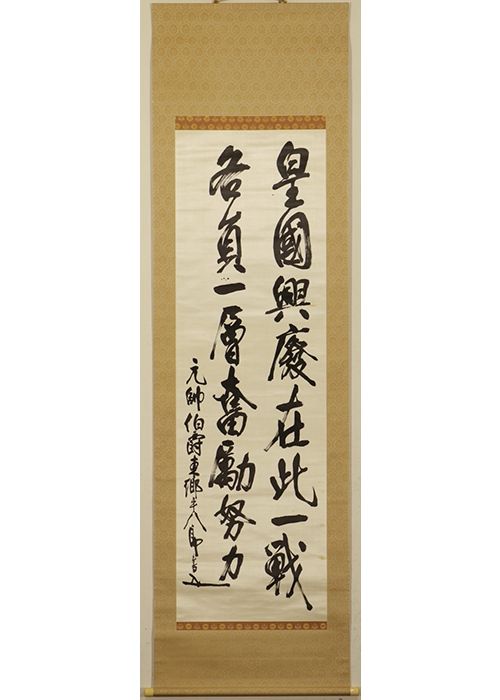 皇國興廢在此一戰
各員一層奮勵努力
元帥伯爵東郷平八郎書